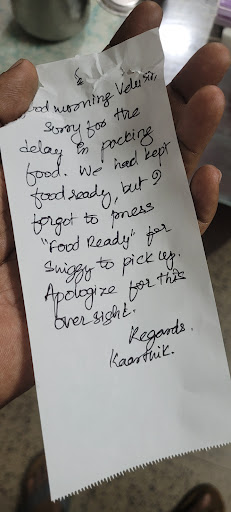 Good morning Velu Sir,
Sorry for the
delay in packing
food. We had kept
food ready, but I
forgot to press
"Food Ready" for
Swiggy to pick up.
Apologize for this
over sight.
Regards,
Kaarthik.